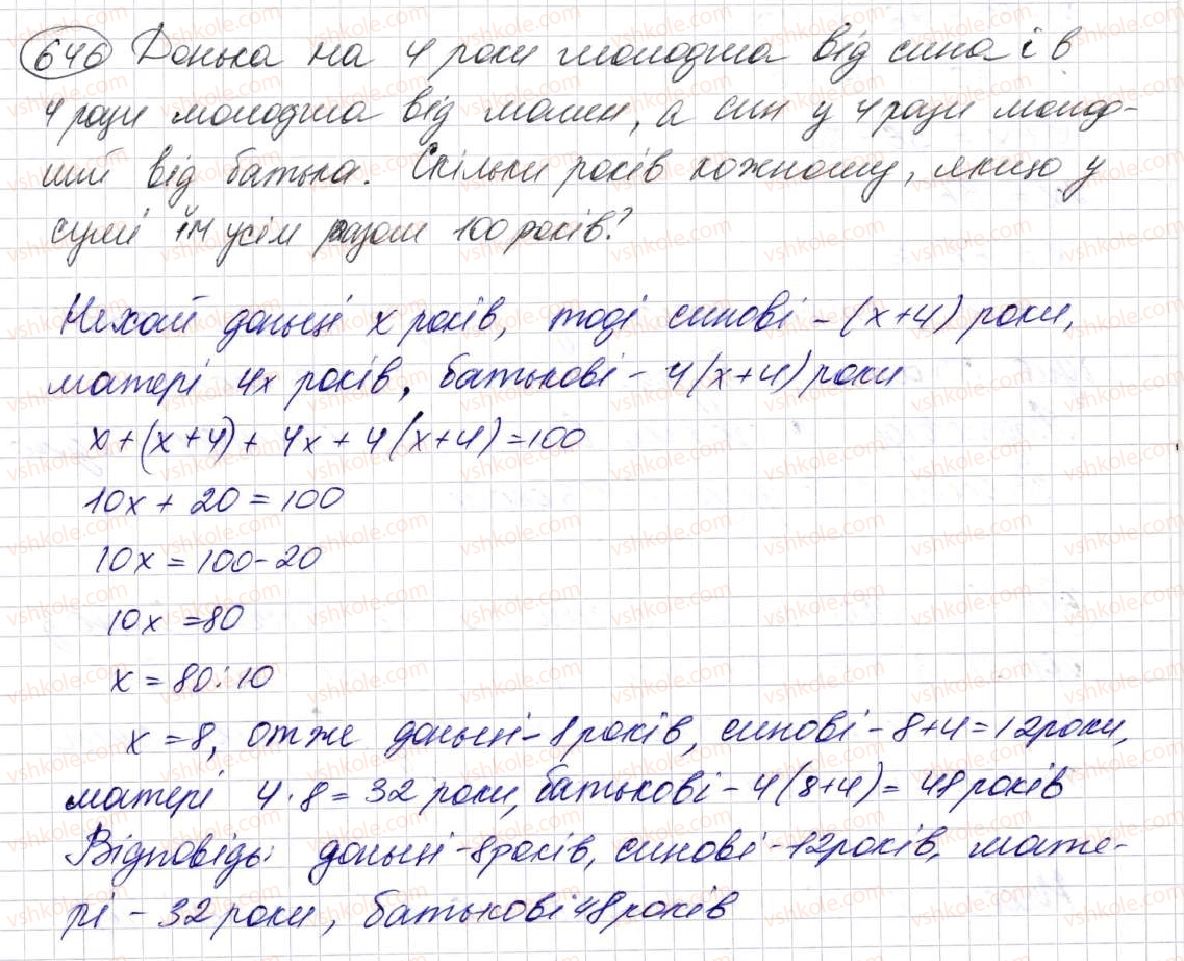 646 Донька на 4 роки молодша від сина і в
4 рази молодша від мами, а син у 4 рази молод-
ший від батька. Скільки років кожному, якщо у
сумі їм усім разом 100 років?
Нехай доньці х років, тоді синові - (х+4) роки,
матері 4х років, батькові - 4(х+4) роки
х+(х+4)+ 4х+4(х+4)=100
10х + 20 = 100
10х = 100-20
10х = 80
х = 80:10
х = 8, отже доньці - 8 років, синові - 8+4=12 роки,
матері 4·8=32 роки, батькові - 4(8+4)= 48 років
Відповідь: доньці - 8 років, синові - 12 років, мате-
рі - 32 роки, батькові 48 років